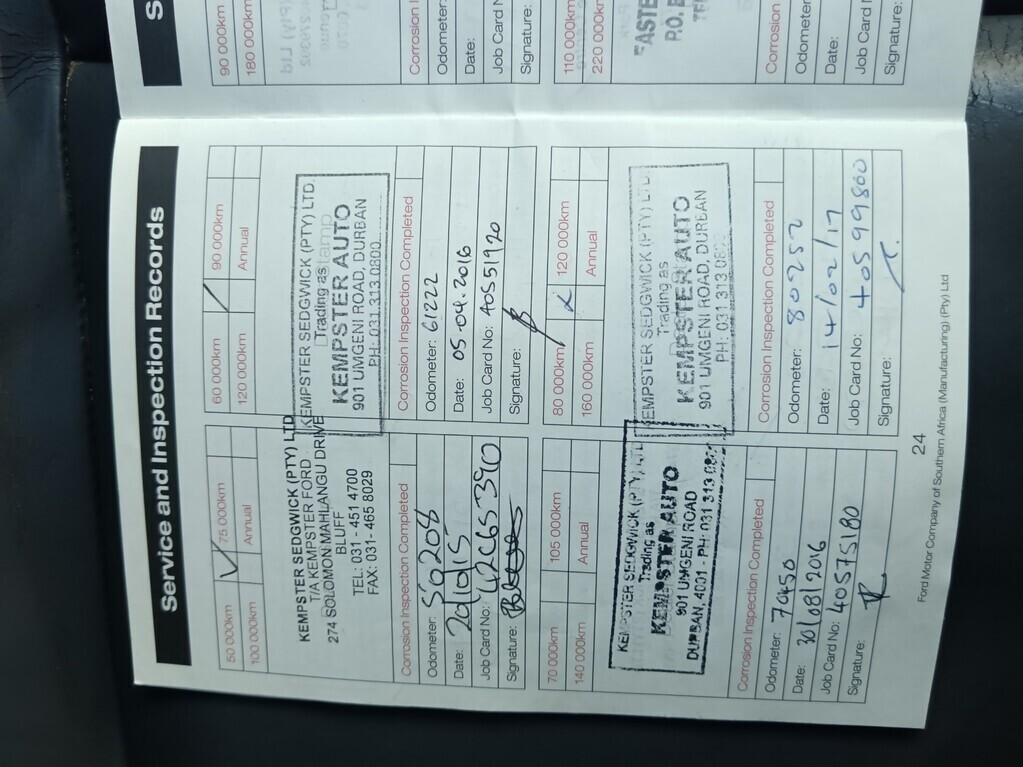 Service and Inspection Records
50 000km 75 000km
100 000km Annual
KEMPSTER SEDGWICK (PTY) LTD
T/A KEMPSTER FORD
274 SOLOMON MAHLANGU DRIVE
BLUFF
TEL: 031 - 451 4700
FAX: 031- 465 8029
Corrosion Inspection Completed
Odometer: 56208
Date: 20/10/15
Job Card No: 42C65390
Signature:
60 000km 90 000km
120 000km Annual
KEMPSTER SEDGWICK (PTY) LTD.
Trading as
KEMPSTER AUTO
901 UMGENI ROAD, DURBAN
PH: 031 313 0800
Corrosion Inspection Completed
Odometer: 61222
Date: 05-04-2016
Job Card No: 40551920
Signature:
70 000km 105 000km
140 000km Annual
KEMPSTER SEDGWICK (PTY) LTD
Trading as
KEMPSTER AUTO
901 UMGENI ROAD
DURBAN, 4001 - PH: 031 313 0800
Corrosion Inspection Completed
Odometer: 70450
Date: 30/08/2016
Job Card No: 40575180
Signature:
80 000km 120 000km
160 000km Annual
KEMPSTER SEDGWICK (PTY) LTD.
Trading as
KEMPSTER AUTO
901 UMGENI ROAD, DURBAN
PH: 031 313
Corrosion Inspection Completed
Odometer: 80252
Date: 14/02/17
Job Card No: 40599800
Signature:
24
Ford Motor Company of Southern Africa (Manufacturing) (Pty) Ltd
S
90 000km
180 000km
Corrosion
Odometer:
Date:
Job Card N
Signature:
110 000km
220 000km
EASTE
P.O. B
Corrosion
Odometer:
Date:
Job Card N
Signature: